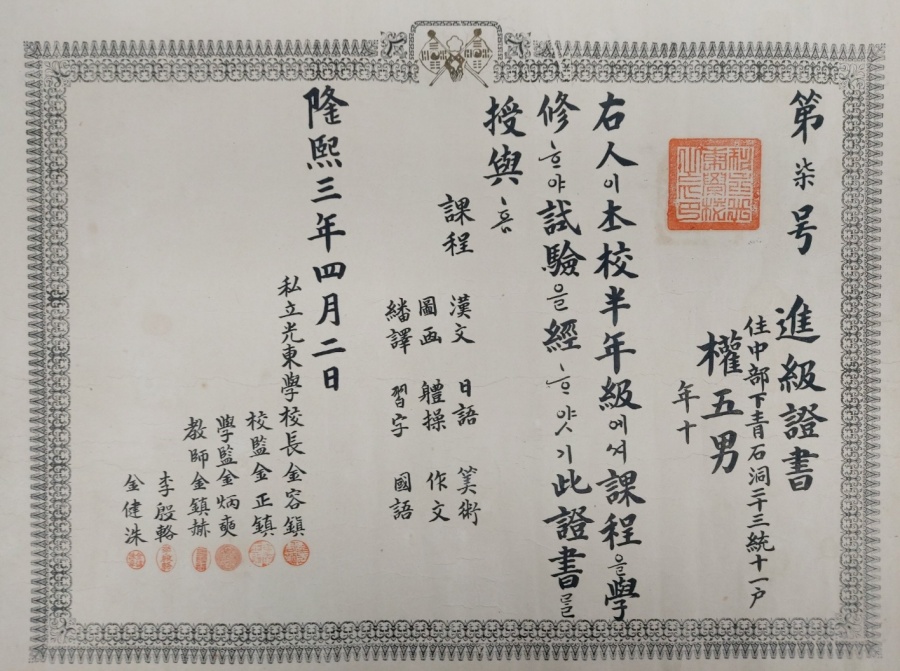 第柒号
進級證書
住中部下青石洞二十三統十一戸
權五男
年十
右人이本校半年級에셔課程을學
修ᄒᆞ야試驗을經ᄒᆞ얏기此證書ᄅᆞᆯ
授與홈
課程
漢文 日語 筭術
圖画 軆操 作文
繙譯 習字 國語
隆熙三年四月二日
私立光東學校長金容鎭
校監金正鎮
學監金炳奭
教師金鎮赫
李殷輅
金健洙